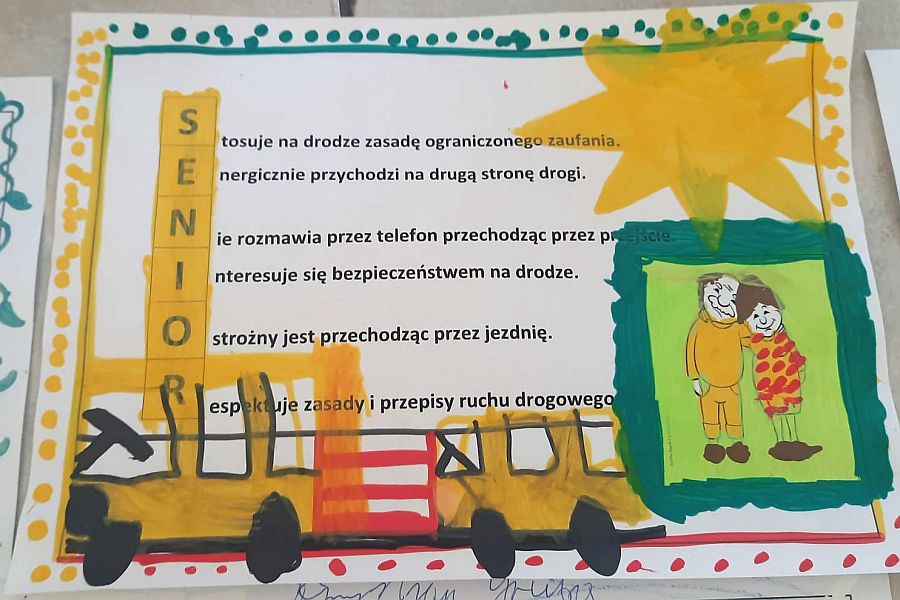 S tosuje na drodze zasadę ograniczonego zaufania.
E nergicznie przychodzi na drugą stronę drogi.
N ie rozmawia przez telefon przechodząc przez przejście.
I nteresuje się bezpieczeństwem na drodze.
O strożny jest przechodząc przez jezdnię.
R espektuje zasady i przepisy ruchu drogowego